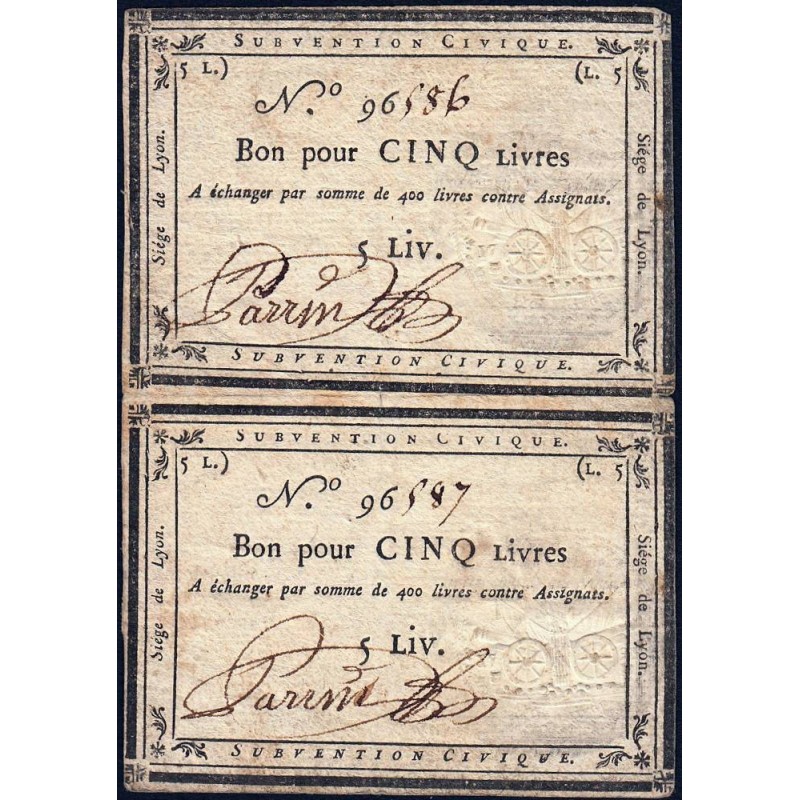 SUBVENTION CIVIQUE.
5 L.) (L. 5
N.º 96586
Bon pour CINQ LIVRES
A échanger par somme de 400 livres contre Assignats.
5 LIV.
Siége de Lyon.
Siége de Lyon.
SUBVENTION CIVIQUE.
SUBVENTION CIVIQUE.
5 L.) (L. 5
N.º 96587
Bon pour CINQ LIVRES
A échanger par somme de 400 livres contre Assignats.
5 LIV.
Siége de Lyon.
Siége de Lyon.
SUBVENTION CIVIQUE.